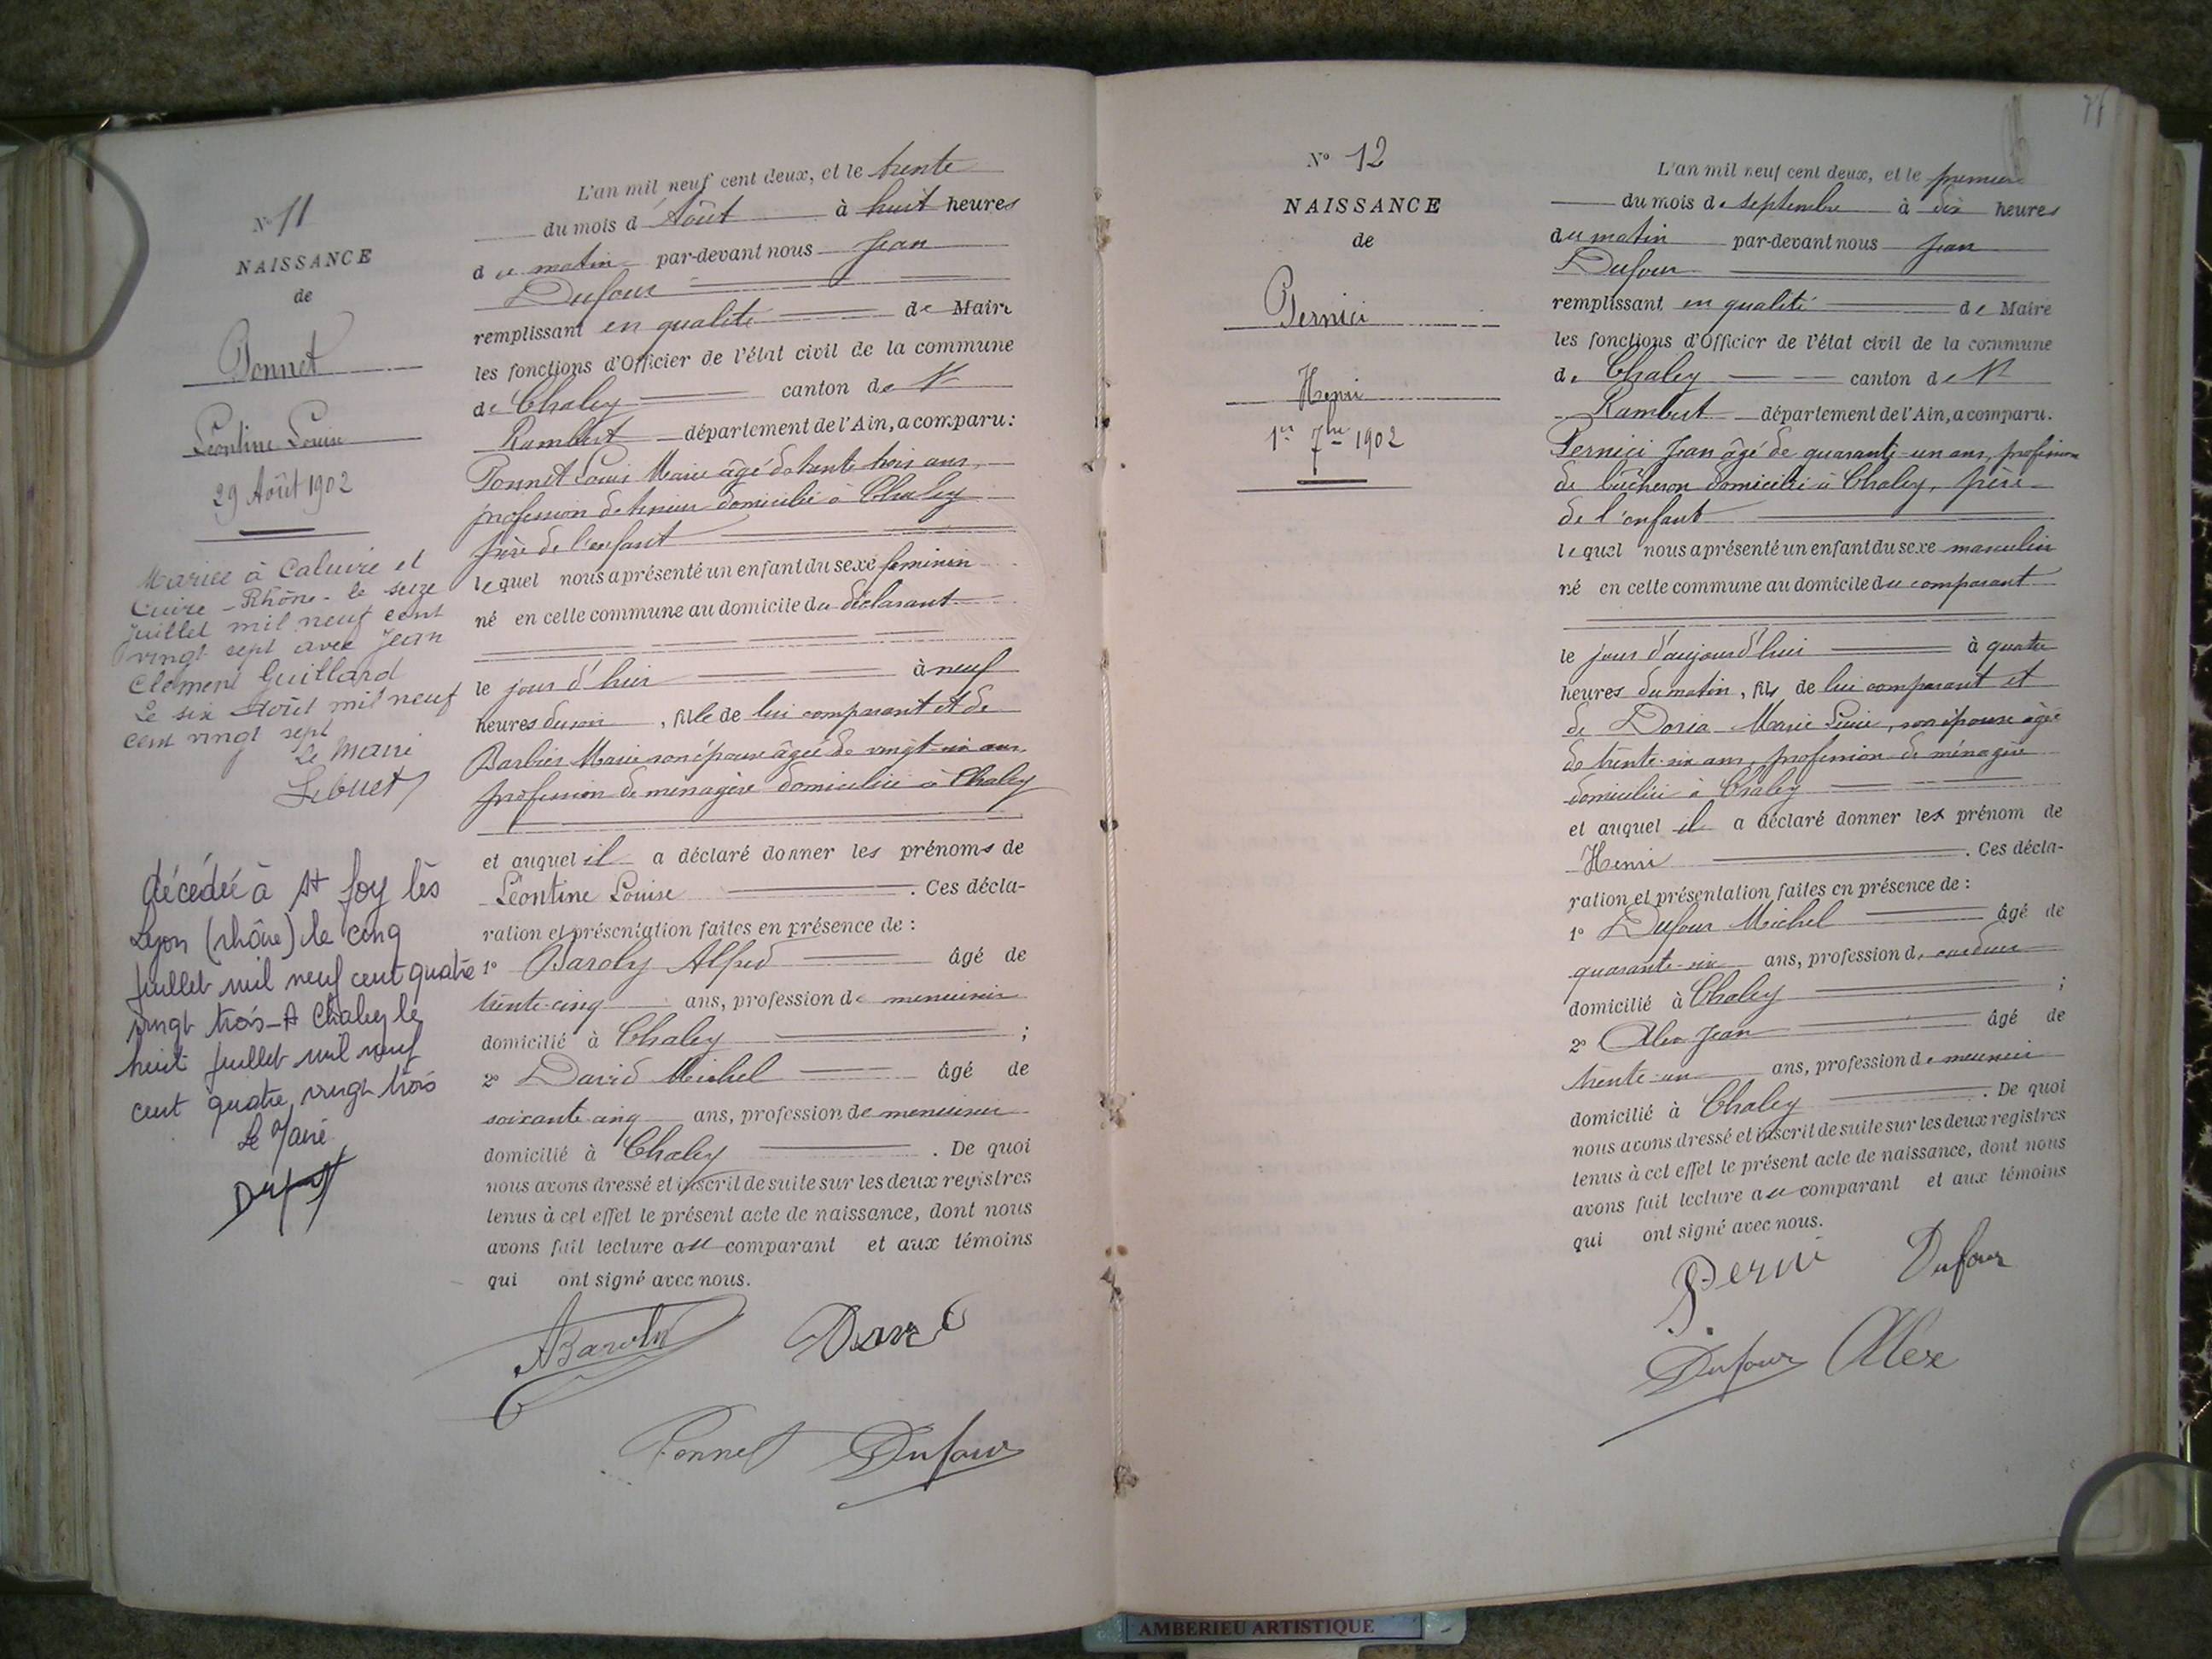 N° 11
NAISSANCE
de
Ponnet
Léontine Louise
29 Août 1902
Mariée à Caluire et
Cuire - Rhône - le seize
juillet mil neuf cent
vingt sept avec Jean
Clément Guillard
Le six Août mil neuf
cent vingt sept
Le Maire
décédée à St foy lès
Lyon (rhône) le cinq
juillet mil neuf cent quatre
vingt trois - A Chaley le
huit juillet mil neuf
cent quatre vingt trois
Le Maire
L'an mil neuf cent deux, et le trente
du mois d'Août à huit heures
du matin par-devant nous Jean
Dufour
remplissant en qualité de Maire
les fonctions d'Officier de l'état civil de la commune
de Chaley canton de St
Rambert département de l'Ain, a comparu:
Ponnet Louis Marie âgé de trente trois ans,
profession de domicilié à Chaley
père de l'enfant
lequel nous a présenté un enfant du sexe féminin
né en cette commune au domicile du déclarant
le jour d'hier à neuf
heures du soir, fille de lui comparant et de
Barbier Marie son épouse âgée de vingt ans
profession de ménagère domiciliée à Chaley
et auquel il a déclaré donner les prénoms de
Léontine Louise. Ces décla-
ration et présentation faites en présence de :
1° Baroly Alfred âgé de
trente-cinq ans, profession de menuisier
domicilié à Chaley ;
2° David Michel âgé de
soixante cinq ans, profession de menuisier
domicilié à Chaley. De quoi
nous avons dressé et inscrit de suite sur les deux registres
tenus à cet effet le présent acte de naissance, dont nous
avons fait lecture au comparant et aux témoins
qui ont signé avec nous.
ABaroly David
Ponnet Dufour
N° 12
NAISSANCE
de
Pernici
Henri
1er 7bre 1902
L'an mil neuf cent deux, et le premier
du mois de septembre à dix heures
du matin par-devant nous Jean
Dufour
remplissant en qualité de Maire
les fonctions d'Officier de l'état civil de la commune
de Chaley canton de St
Rambert département de l'Ain, a comparu.
Pernici Jean âgé de quarante-un ans, profession
de bûcheron domicilié à Chaley, père
de l'enfant
lequel nous a présenté un enfant du sexe masculin
né en cette commune au domicile du comparant
le jour d'aujourd'hui à quatre
heures du matin, fils de lui comparant et
de Doria Marie Lucie, son épouse âgée
de trente-six ans, profession de ménagère
domiciliée à Chaley
et auquel il a déclaré donner les prénom de
Henri. Ces décla-
ration et présentation faites en présence de :
1° Dufour Michel âgé de
quarante-six ans, profession de cardeur
domicilié à Chaley ;
2° Alex Jean âgé de
trente-un ans, profession de meunier
domicilié à Chaley. De quoi
nous avons dressé et inscrit de suite sur les deux registres
tenus à cet effet le présent acte de naissance, dont nous
avons fait lecture au comparant et aux témoins
qui ont signé avec nous.
Dufour
Dufour Alex
AMBERIEU ARTISTIQUE